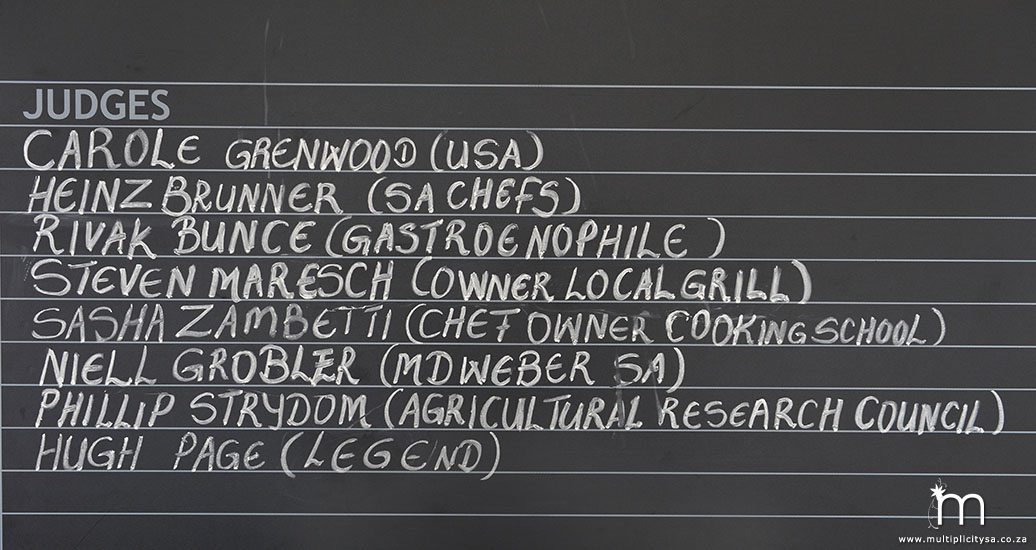 JUDGES
CAROLE GRENWOOD (USA)
HEINZ BRUNNER (SA CHEFS)
RIVAK BUNCE (GASTROENOPHILE)
STEVEN MARESCH (OWNER LOCAL GRILL)
SASHA ZAMBETTI (CHEF OWNER COOKING SCHOOL)
NIELL GROBLER (MD WEBER SA)
PHILLIP STRYDOM (AGRICULTURAL RESEARCH COUNCIL)
HUGH PAGE (LEGEND)
m
www.multiplicitysa.co.za